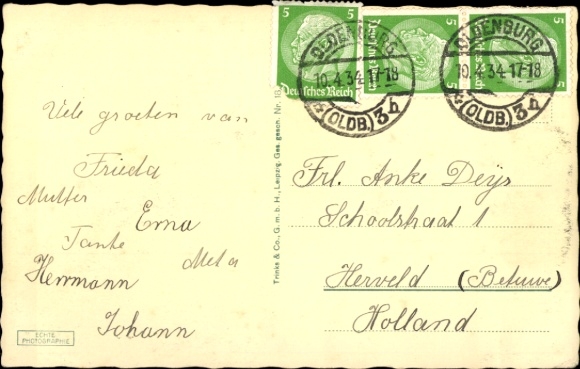 Vele groeten van
Frieda
Mutter
Erna
Tante
Meta
Herrmann
Johann
ECHTE
PHOTOGRAPHIE
Trinks & Co., G. m. b. H., Leipzig. Ges. gesch. Nr.
5 5
Deutsches Reich
5
5
5
5
OLDENBURG
10.4.34.17-18
(OLDB.) 3h
OLDENBURG
10.4.34.17-18
(OLDB.) 3h
Frl. Anke Deijs
Schoolstraat 1
Herveld (Betuwe)
Holland